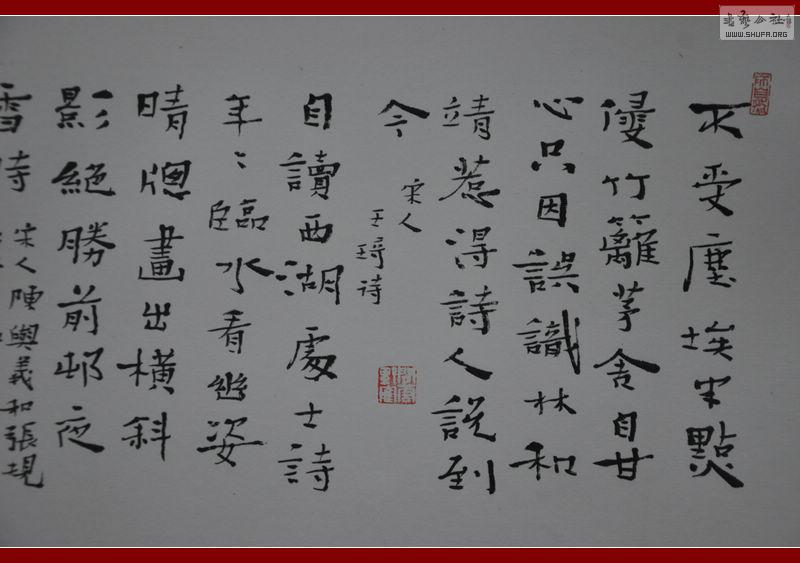 不受塵埃半點
侵竹籬茅舍自甘
心只因誤識林和
靖惹得詩人說到
今
宋人
王琦詩
自讀西湖處士詩
年〻臨水看幽姿
晴牕畫出橫斜
影絕勝前邨夜
雪時
宋人陳與義和張規
WWW.SHUFA.ORG